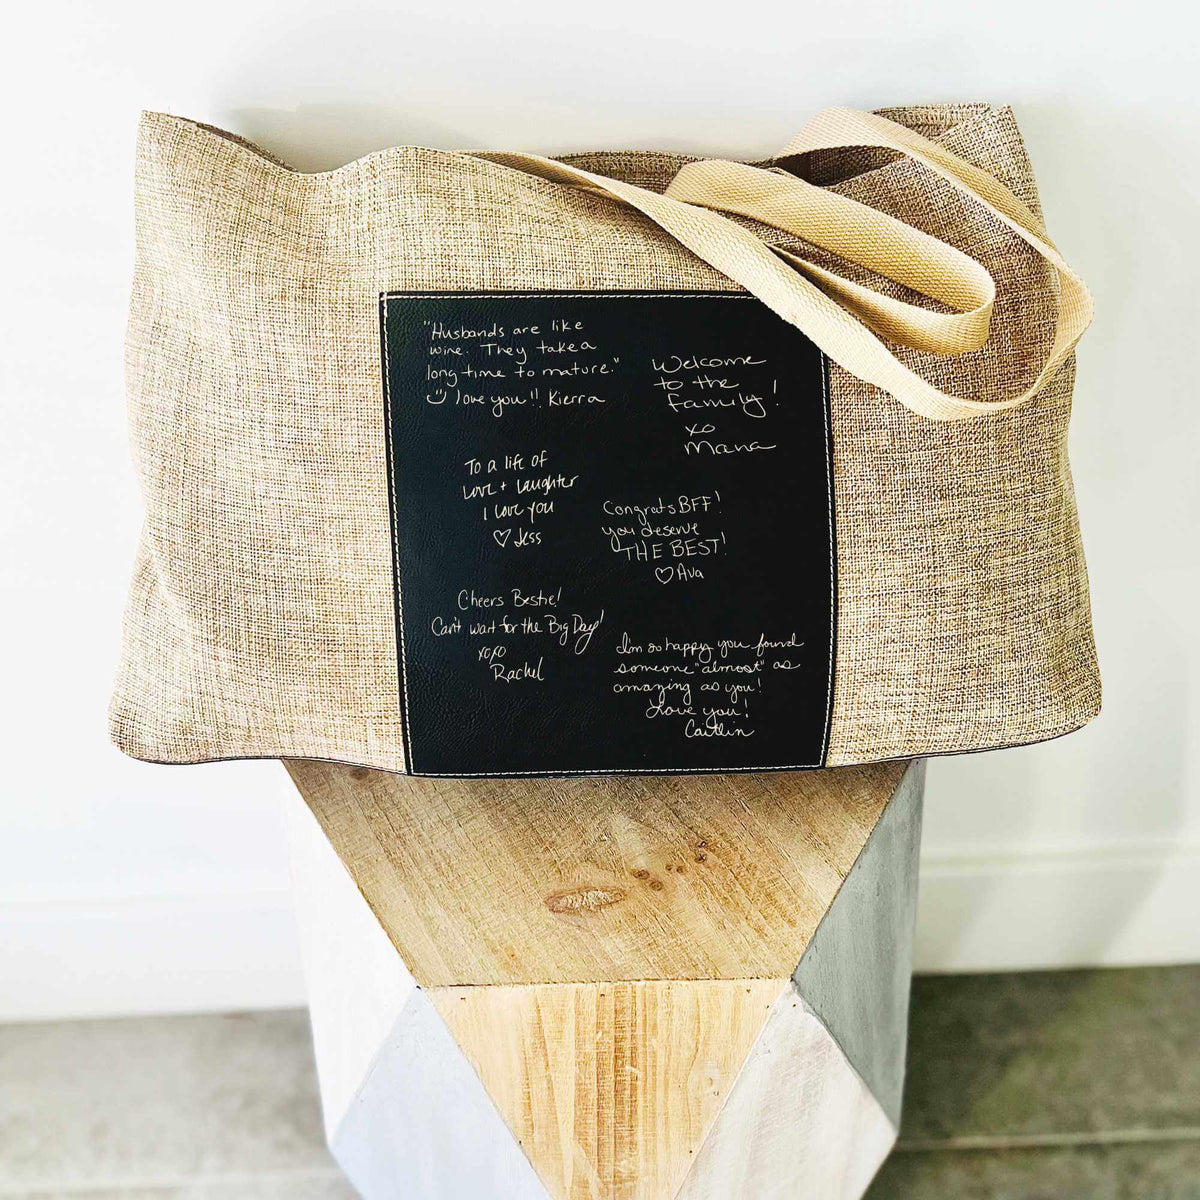 "Husbands are like
wine. They take a
long time to mature."
love you!! Kierra
Welcome
to the
family!
xo
Mama
To a life of
Love + Laughter
I love you
♡ Jess
Congrats BFF!
you deserve
THE BEST!
♡ Ava
Cheers Bestie!
Can't wait for the Big Day!
xoxo
Rachel
I'm so happy you found
someone "almost" as
amazing as you!
Love you!
Caitlin